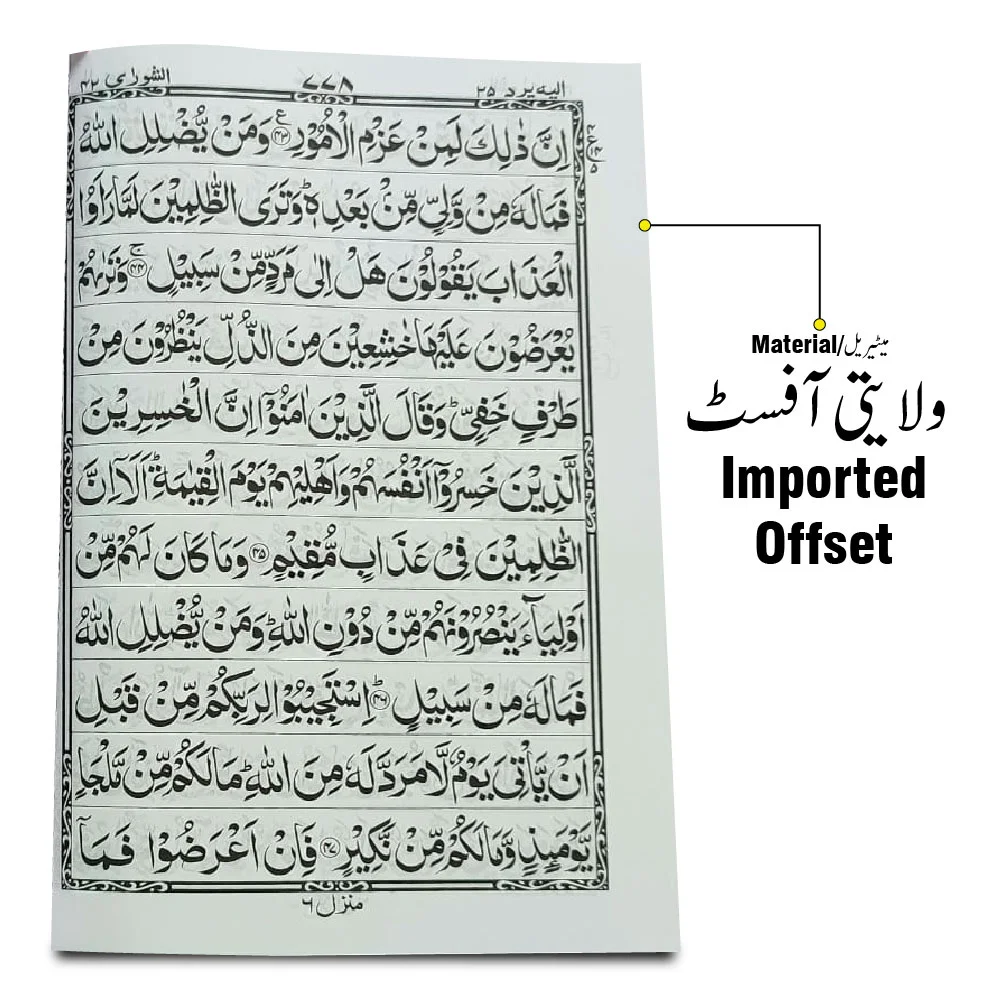 اليه يرد ٢٥
٧٧٨
الشورٰى ٤٢
اِنَّ ذٰلِكَ لَمِنْ عَزْمِ الْاُمُوْرِ ﴿٤٣﴾ ع وَمَنْ يُّضْلِلِ اللّٰهُ
فَمَا لَهٗ مِنْ وَّلِيٍّ مِّنْۢ بَعْدِهٖ ؕ وَتَرَى الظّٰلِمِيْنَ لَمَّا رَاَوُا
الْعَذَابَ يَقُوْلُوْنَ هَلْ اِلٰى مَرَدٍّ مِّنْ سَبِيْلٍ ﴿٤٤﴾ ج وَتَرٰىهُمْ
يُعْرَضُوْنَ عَلَيْهَا خٰشِعِيْنَ مِنَ الذُّلِّ يَنْظُرُوْنَ مِنْ
طَرْفٍ خَفِيٍّ ؕ وَقَالَ الَّذِيْنَ اٰمَنُوْۤا اِنَّ الْخٰسِرِيْنَ
الَّذِيْنَ خَسِرُوْۤا اَنْفُسَهُمْ وَاَهْلِيْهِمْ يَوْمَ الْقِيٰمَةِ ؕ اَلَاۤ اِنَّ
الظّٰلِمِيْنَ فِيْ عَذَابٍ مُّقِيْمٍ ﴿٤٥﴾ وَمَا كَانَ لَهُمْ مِّنْ
اَوْلِيَآءَ يَنْصُرُوْنَهُمْ مِّنْ دُوْنِ اللّٰهِ ؕ وَمَنْ يُّضْلِلِ اللّٰهُ
فَمَا لَهٗ مِنْ سَبِيْلٍ ﴿٤٦﴾ ؕ اِسْتَجِيْبُوْا لِرَبِّكُمْ مِّنْ قَبْلِ
اَنْ يَّاْتِيَ يَوْمٌ لَّا مَرَدَّ لَهٗ مِنَ اللّٰهِ ؕ مَا لَكُمْ مِّنْ مَّلْجَاٍ
يَّوْمَىِٕذٍ وَّمَا لَكُمْ مِّنْ نَّكِيْرٍ ﴿٤٧﴾ فَاِنْ اَعْرَضُوْا فَمَاۤ
منزل ٦
Material/میٹیریل
ولایتی آفسٹ
Imported
Offset